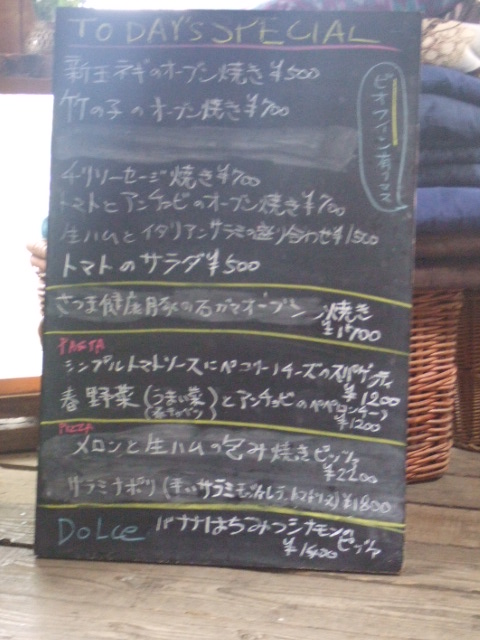 TODAY'S SPECIAL
新玉ネギのオーブン焼き ¥500
竹の子のオーブン焼き ¥700
ビオワイン有リマス
チリソーセージ焼き ¥700
トマトとアンチョビのオーブン焼き ¥700
生ハムとイタリアンサラミの盛り合わせ ¥1500
トマトのサラダ ¥500
さつま健康豚の石ガマオーブン焼き
¥1700
PASTA
シンプルトマトソースにペコリーノチーズのスパゲッティ
¥1200
春野菜(うまい菜)とアンチョビのペペロンチーノ
¥1200
PIZZA
メロンと生ハムの包み焼きピッツァ
¥2200
サラミナポリ(辛いサラミ ¥1800
DoLce バナナはちみつシナモンのピッツァ